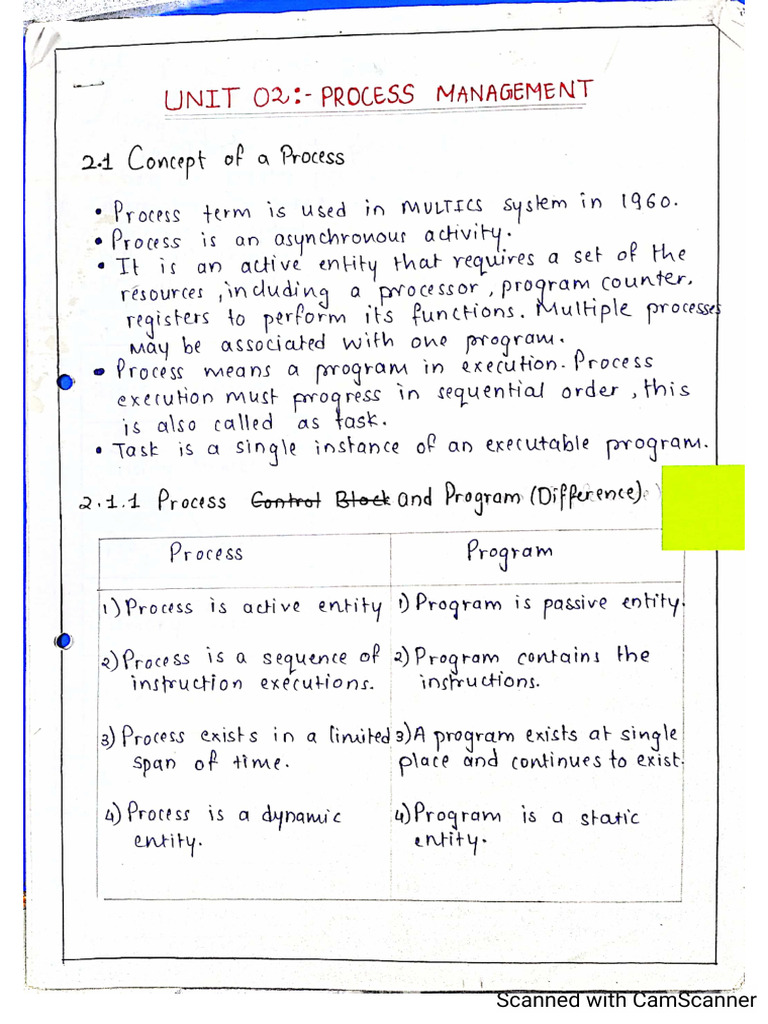 UNIT 02:- PROCESS MANAGEMENT
2.1 Concept of a Process
• Process term is used in MULTICS system in 1960.
• Process is an asynchronous activity.
• It is an active entity that requires a set of the
resources, including a processor, program counter,
registers to perform its functions. Multiple processes
may be associated with one program.
• Process means a program in execution. Process
execution must progress in sequential order, this
is also called as task.
• Task is a single instance of an executable program.
2.1.1 Process Control Block and Program (Difference).
Process Program
1) Process is active entity 1) Program is passive entity.
2) Process is a sequence of 2) Program contains the
instruction executions. instructions.
3) Process exists in a limited 3) A program exists at single
span of time. place and continues to exist.
4) Process is a dynamic 4) Program is a static
entity. entity.
Scanned with CamScanner